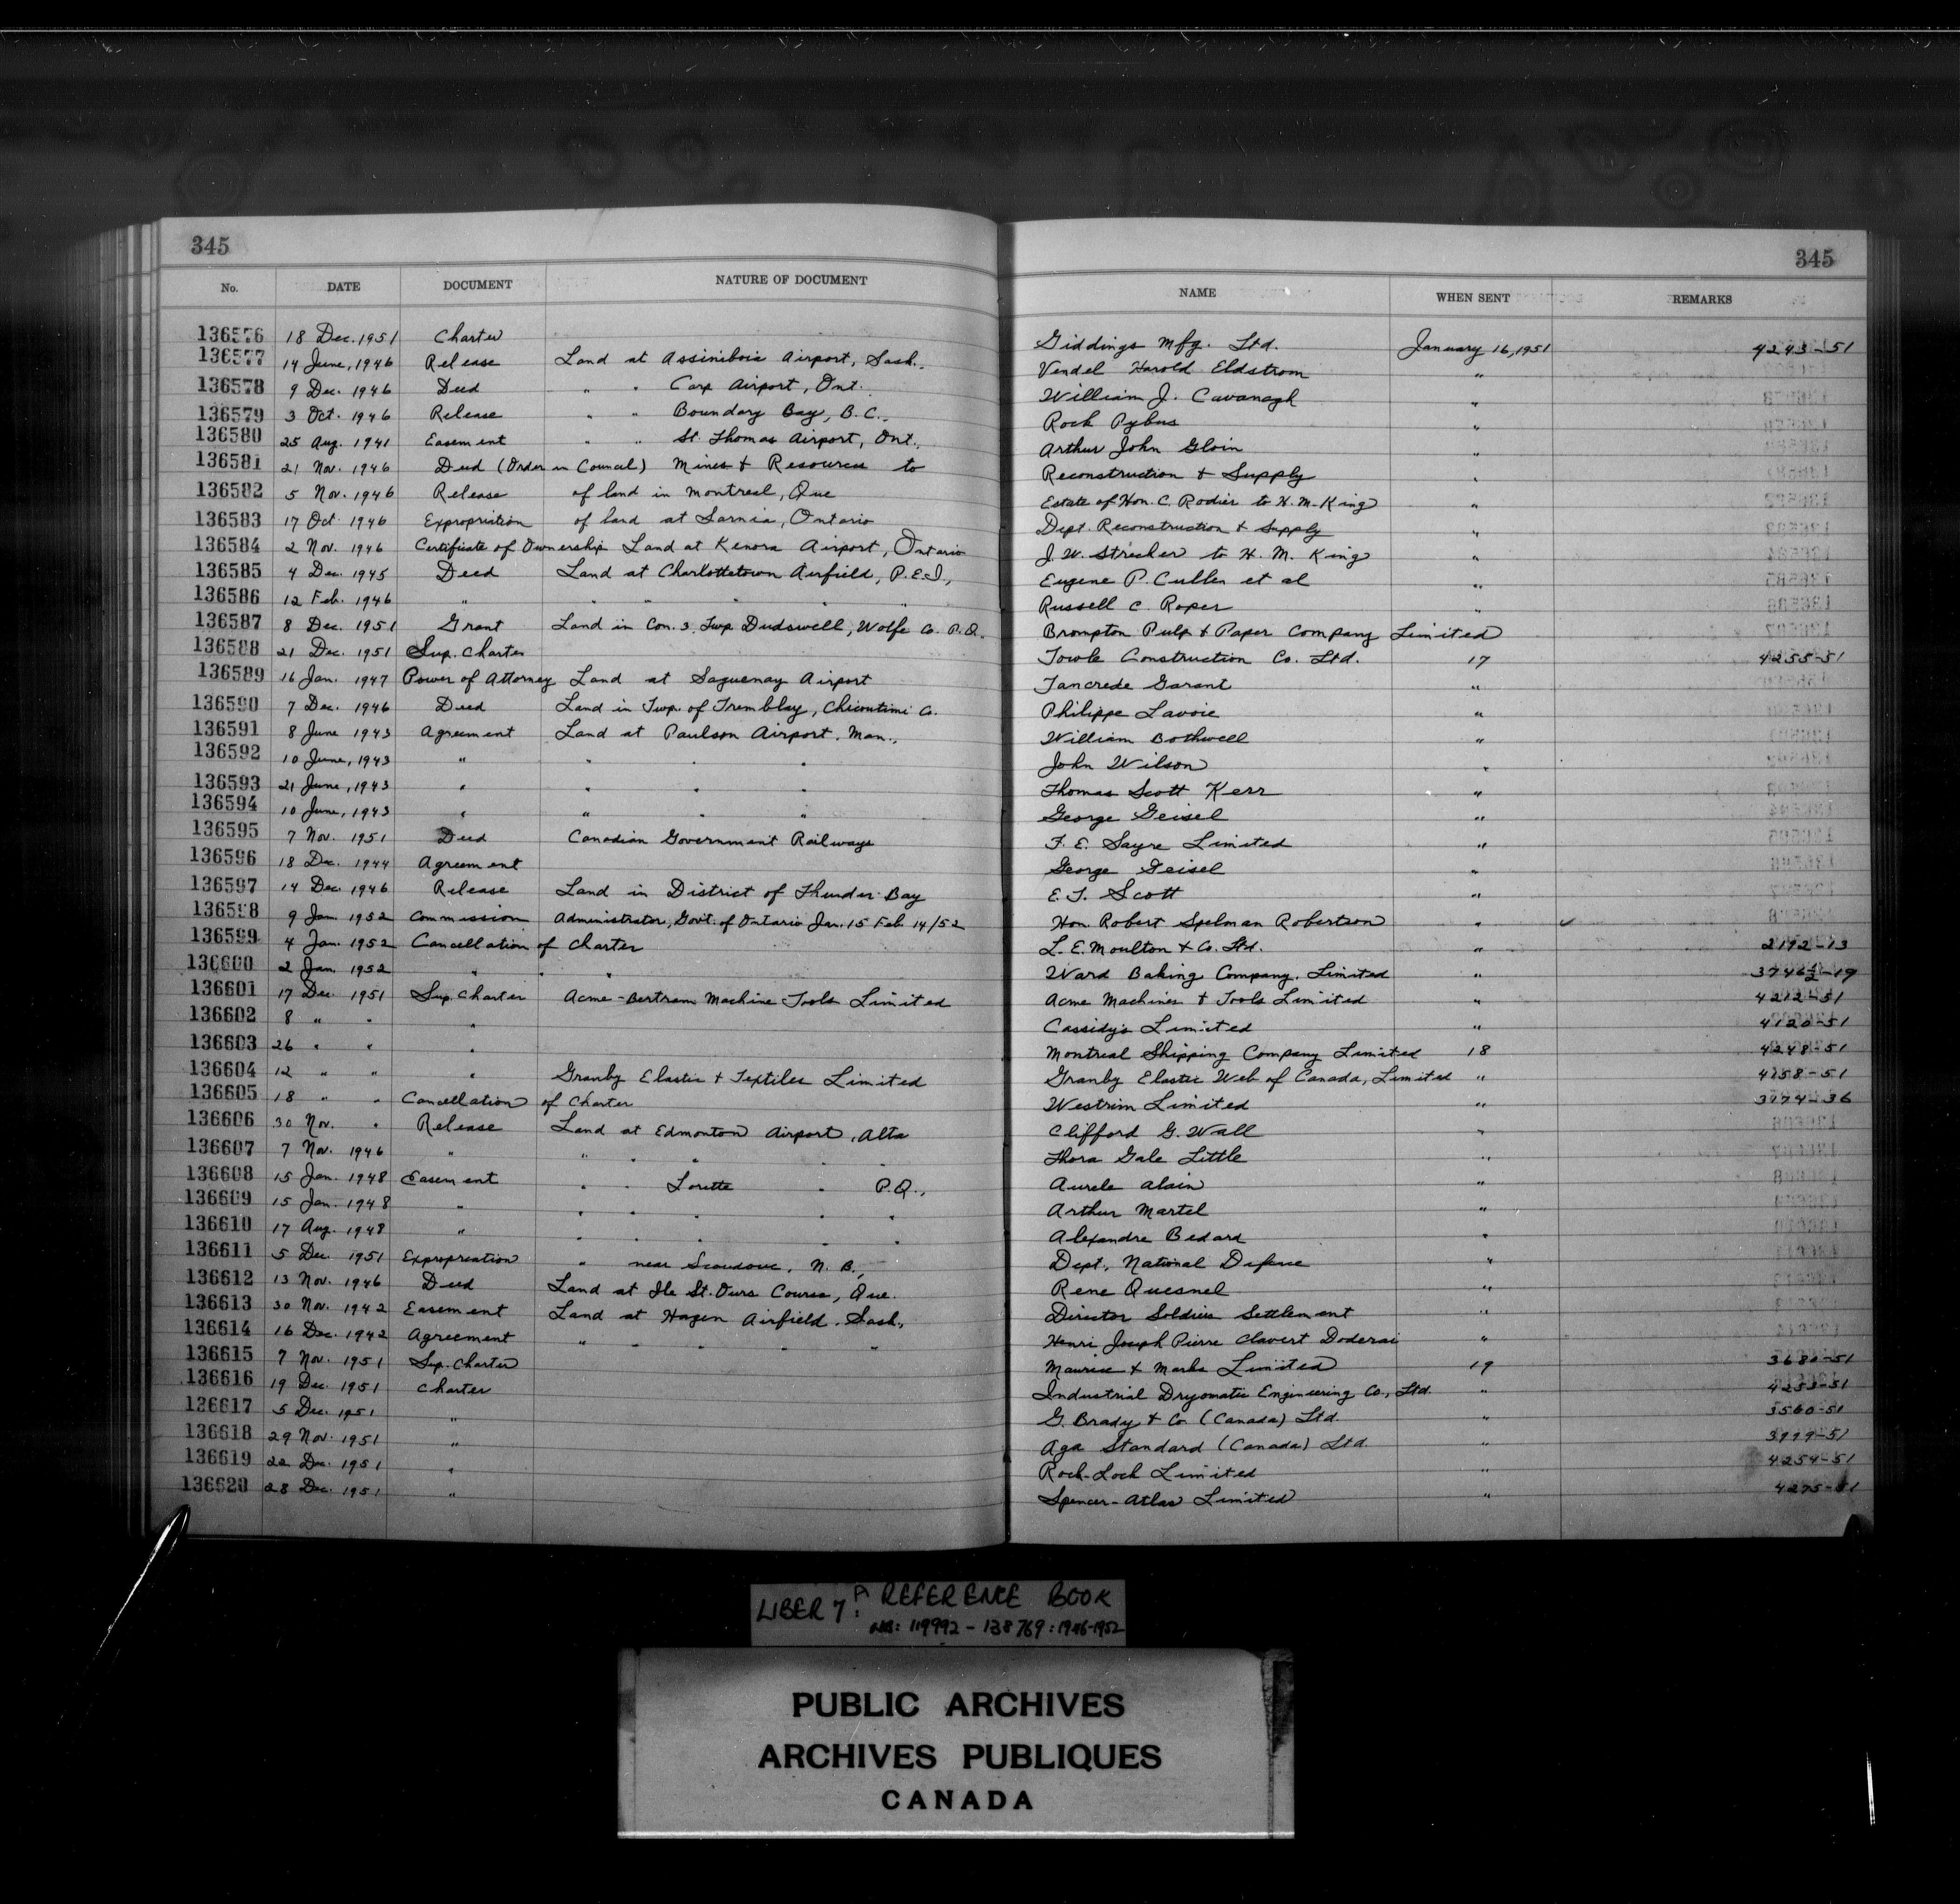 345
345
No. DATE DOCUMENT NATURE OF DOCUMENT NAME WHEN SENT REMARKS
136576 18 Dec. 1951 Charter Giddings Mfg. Ltd. January 16, 1951 4243-51
136577 14 June, 1946 Release Land at Assiniboia Airport, Sask., Vendel Harold Eldstrom "
136578 9 Dec. 1946 Deed " " Carp Airport, Ont. William J. Cavanagh "
136579 3 Oct. 1946 Release " " Boundary Bay, B.C., Rock Pybus "
136580 25 Aug. 1941 Easement " " St. Thomas Airport, Ont., Arthur John Gloin "
136581 21 Nov. 1946 Deed (Order in Council) Mines & Resources to Reconstruction & Supply "
136582 5 Nov. 1946 Release of land in Montreal, Que Estate of Hon. C. Rodier to H. M. King "
136583 17 Oct. 1946 Expropriation of land at Sarnia, Ontario Dept. Reconstruction & Supply "
136584 2 Nov. 1946 Certificate of Ownership Land at Kenora Airport, Ontario J. W. Strecher to H. M. King "
136585 4 Dec. 1945 Deed Land at Charlottetown Airfield, P.E.I., Eugene P. Cullen et al "
136586 12 Feb. 1946 " " " " " " Russell C. Roper "
136587 8 Dec. 1951 Grant Land in Con. 3, Twp. Dudswell, Wolfe Co. P.Q. Brompton Pulp & Paper Company Limited
136588 21 Dec. 1951 Sup. Charter Towle Construction Co. Ltd. 17 4255-51
136589 16 Jan. 1947 Power of Attorney Land at Saguenay Airport Tancrede Garant "
136590 7 Dec. 1946 Deed Land in Twp. of Tremblay, Chicoutimi Co. Philippe Lavoie "
136591 8 June 1943 Agreement Land at Paulson Airport, Man., William Bothwell "
136592 10 June, 1943 " " " " John Wilson "
136593 21 June, 1943 " " " " Thomas Scott Kerr "
136594 10 June, 1943 " " " " George Geisel "
136595 7 Nov. 1951 Deed Canadian Government Railways F. E. Sayre Limited "
136596 18 Dec. 1944 Agreement George Geisel "
136597 14 Dec. 1946 Release Land in District of Thunder Bay E. T. Scott "
136598 9 Jan. 1952 Commission Administrator, Govt. of Ontario Jan. 15 Feb. 14/52 Hon. Robert Spelman Robertson " ✓
136599 4 Jan. 1952 Cancellation of Charter L. E. Moulton & Co. Ltd. " 2192-13
136600 2 Jan. 1952 " " " Ward Baking Company, Limited " 3746½-19
136601 17 Dec 1951 Sup. Charter Acme-Bertram Machine Tools Limited Acme Machines & Tools Limited " 4212-51
136602 8 " " " Cassidy's Limited " 4120-51
136603 26 " " " Montreal Shipping Company Limited 18 4248-51
136604 12 " " " Granby Elastic & Textiles Limited Granby Elastic Web of Canada, Limited " 4158-51
136605 18 " " Cancellation of Charter Westrim Limited " 3774-36
136606 30 Nov. " Release Land at Edmonton Airport, Alta Clifford G. Wall "
136607 7 Nov. 1946 " " " " " " Thora Gale Little "
136608 15 Jan. 1948 Easement " " Lorette " P.Q., Aurele Alain "
136609 15 Jan. 1948 " " " " " " Arthur Martel "
136610 17 Aug. 1948 " " " " " " Alexandre Bedard "
136611 5 Dec. 1951 Expropriation " near Scoudouc, N.B., Dept., National Defence "
136612 13 Nov. 1946 Deed Land at Ile St. Ours Course, Que. Rene Quesnel "
136613 30 Nov. 1942 Easement Land at Hagen Airfield, Sask., Director Soldiers Settlement "
136614 16 Dec. 1942 Agreement " " " " " Henri Joseph Pierre Clavert Doderai "
136615 7 Nov. 1951 Sup. Charter Maurice & Marks Limited 19 3680-51
136616 19 Dec. 1951 Charter Industrial Dryomatic Engineering Co., Ltd. " 4253-51
136617 5 Dec. 1951 " G. Brady & Co. (Canada) Ltd. " 3560-51
136618 29 Nov. 1951 " Aga Standard (Canada) Ltd. " 3999-51
136619 22 Dec. 1951 " Rock-Loch Limited " 4254-51
136620 28 Dec. 1951 " Spencer-Atlas Limited " 4275-51
LIBER 7: A REFERENCE BOOK
NOS: 119992 - 138769: 1946-1952
PUBLIC ARCHIVES
ARCHIVES PUBLIQUES
CANADA